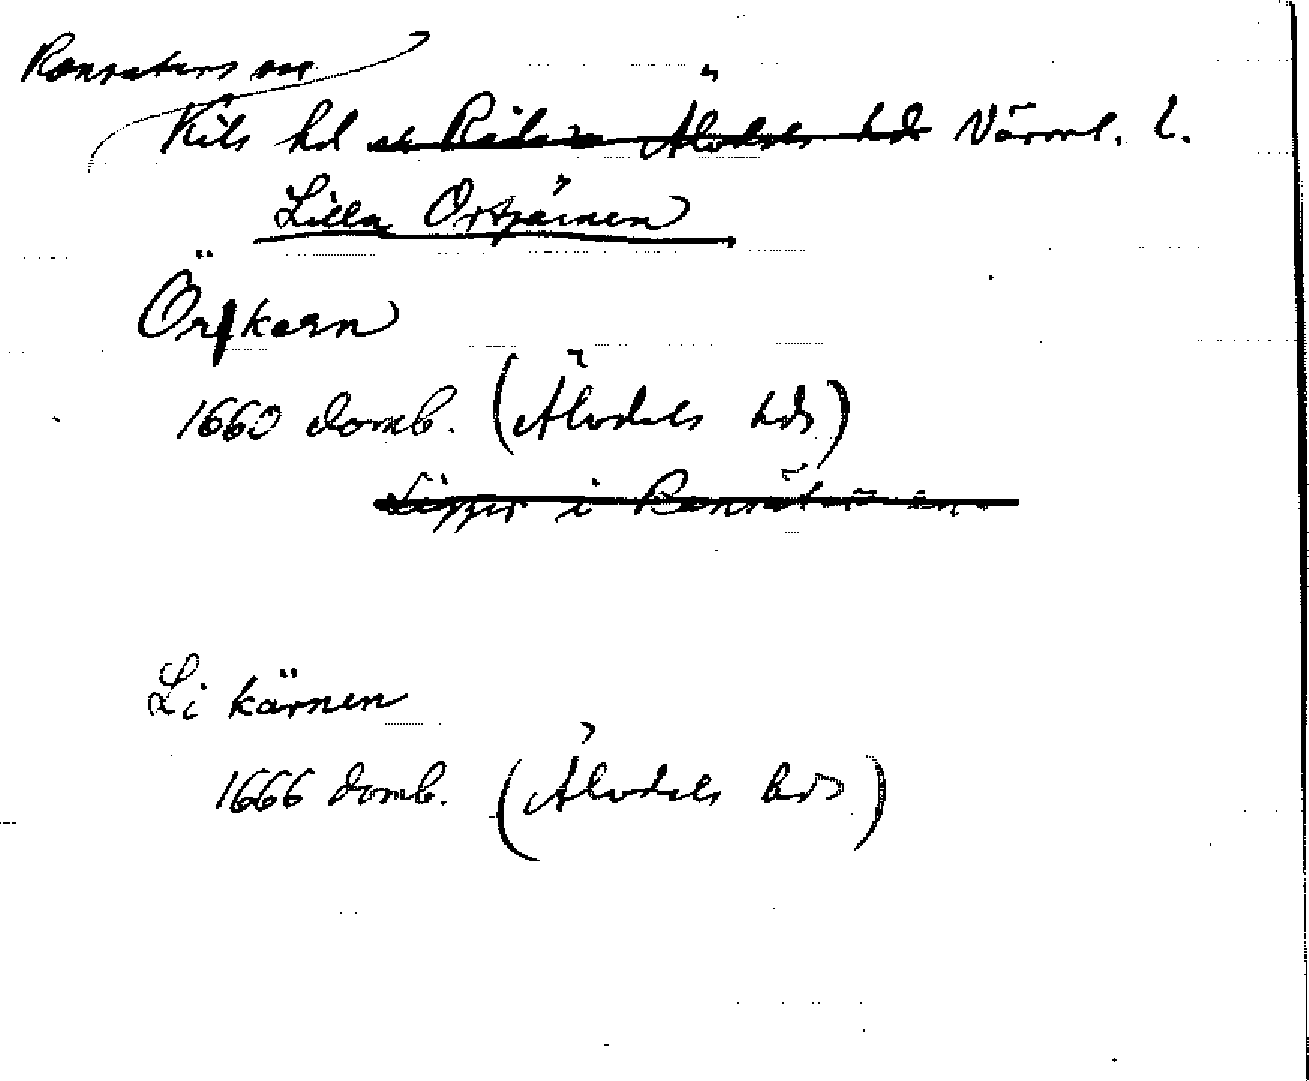 Ransäters sn
Kils hd o Råda sn Älvdals hd Värml. l.
Lilla Örtjärnen
Örtkærn
1660 domb. (Älvdals hds)
Ligger i Ransäters sn.
Li kärnen
1666 domb. (Älvdals hds)